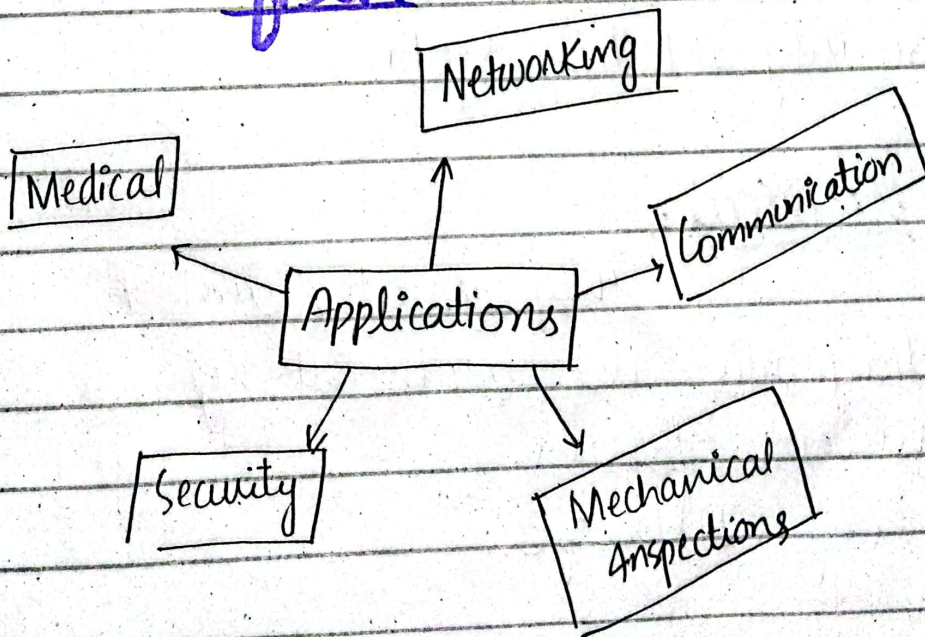 Networking
Medical
Communication
Applications
Security
Mechanical
Inspections